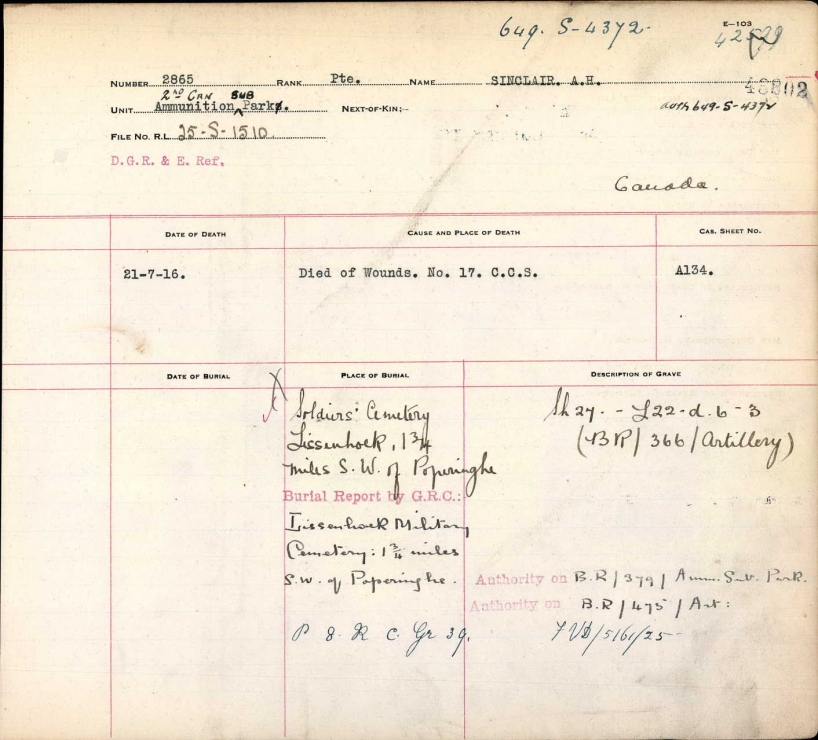 649. S-4372.
E-103
NUMBER 2865 RANK Pte. NAME SINCLAIR. A.H.
2ND CAN SUB
UNIT Ammunition Park. NEXT-OF-KIN:- auth 649-S-4372
FILE NO. R.L. 25-S-1510
D.G.R. & E. Ref.
Canada.
DATE OF DEATH CAUSE AND PLACE OF DEATH CAS. SHEET NO.
21-7-16. Died of Wounds. No. 17. C.C.S. A134.
DATE OF BURIAL PLACE OF BURIAL DESCRIPTION OF GRAVE
Soldiers' Cemetery Sh 27. - L22-d.6-3
Lissenhoek, 1 3/4 (BR/366/Artillery)
miles S.W. of Poperinghe
Burial Report by G.R.C.:
Lissenhoek Military
Cemetery: 1 3/4 miles
S.W. of Poperinghe. Authority on B.R/379/Amm. Sub. Park.
Authority on B.R/475/Art:
P 8. R C. Gr 39.